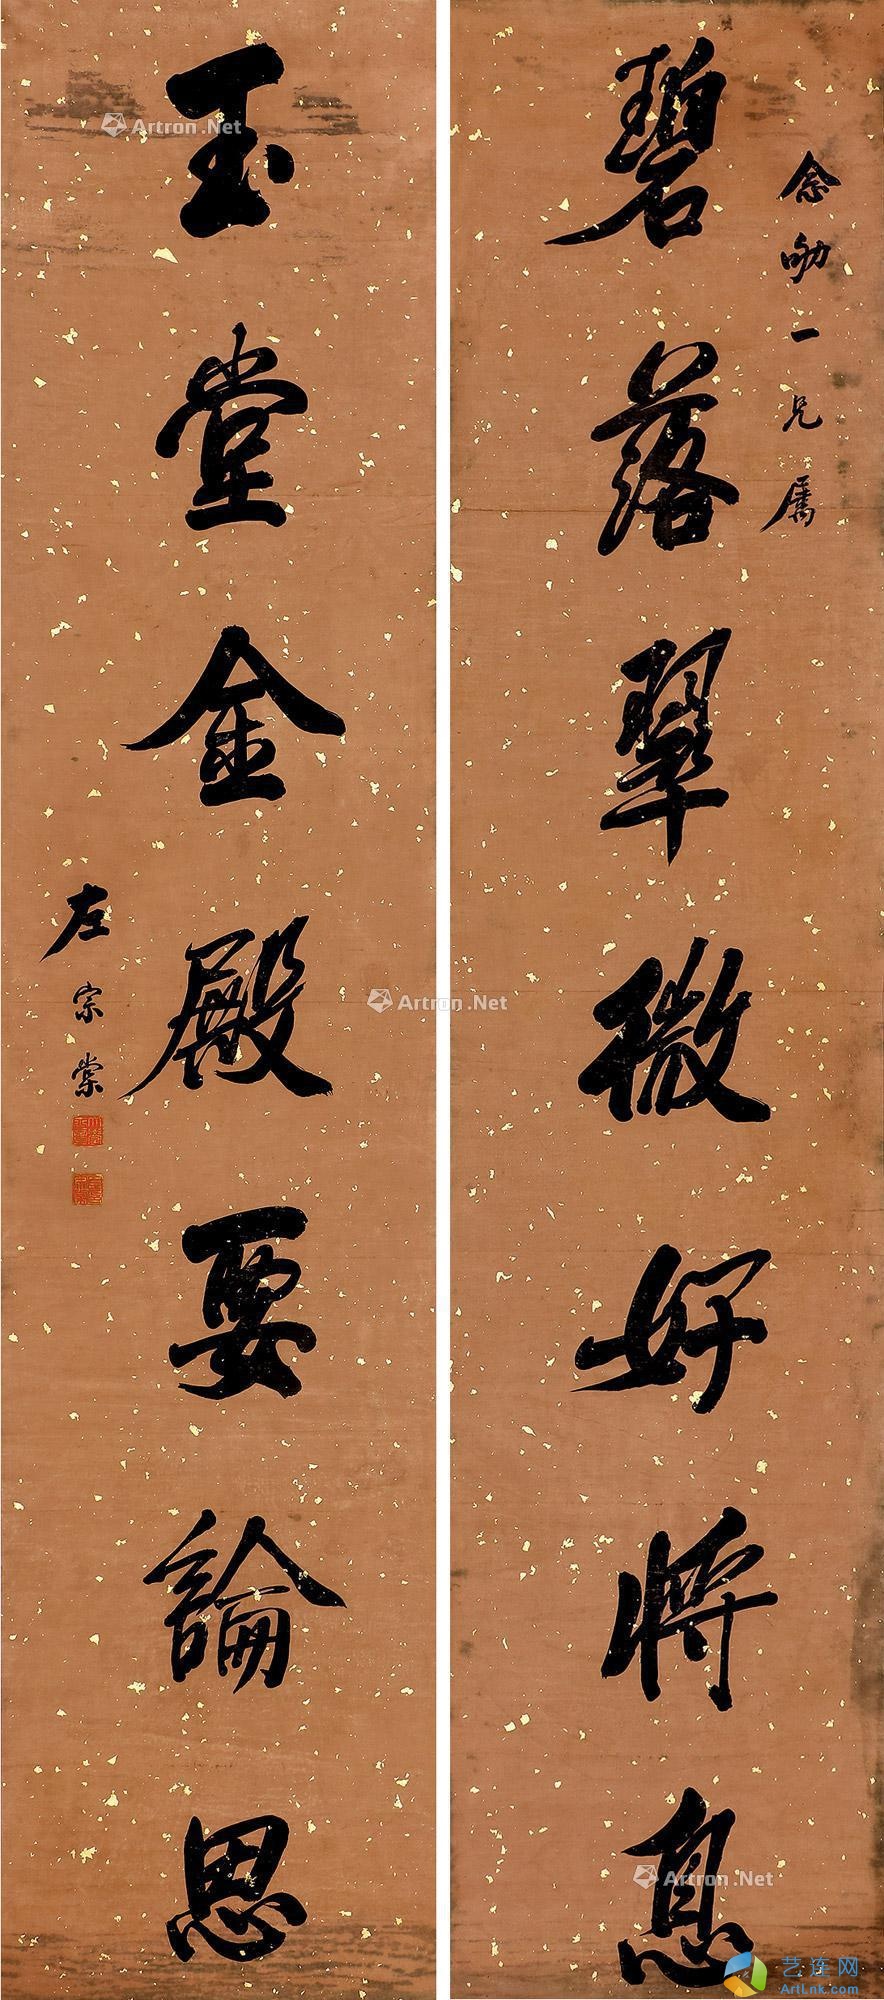 碧落翠微好將息
念劬一兄属
玉堂金殿要論思
左宗棠
Artron.Net
Artron.Net
Artron.Net
艺连网
ArtLnk.com